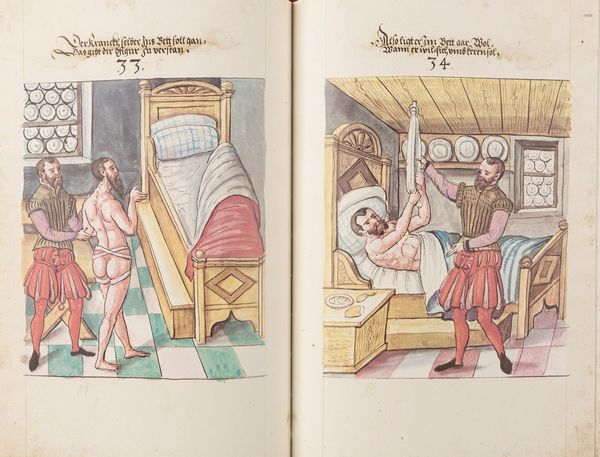 Der Kranck selber Ins Bett soll gan.
Das gibt dir dis figur zu verstan.
33.
Also ligt er Im Bett gar Wol.
Wann er will sich umb keren sol.
34.